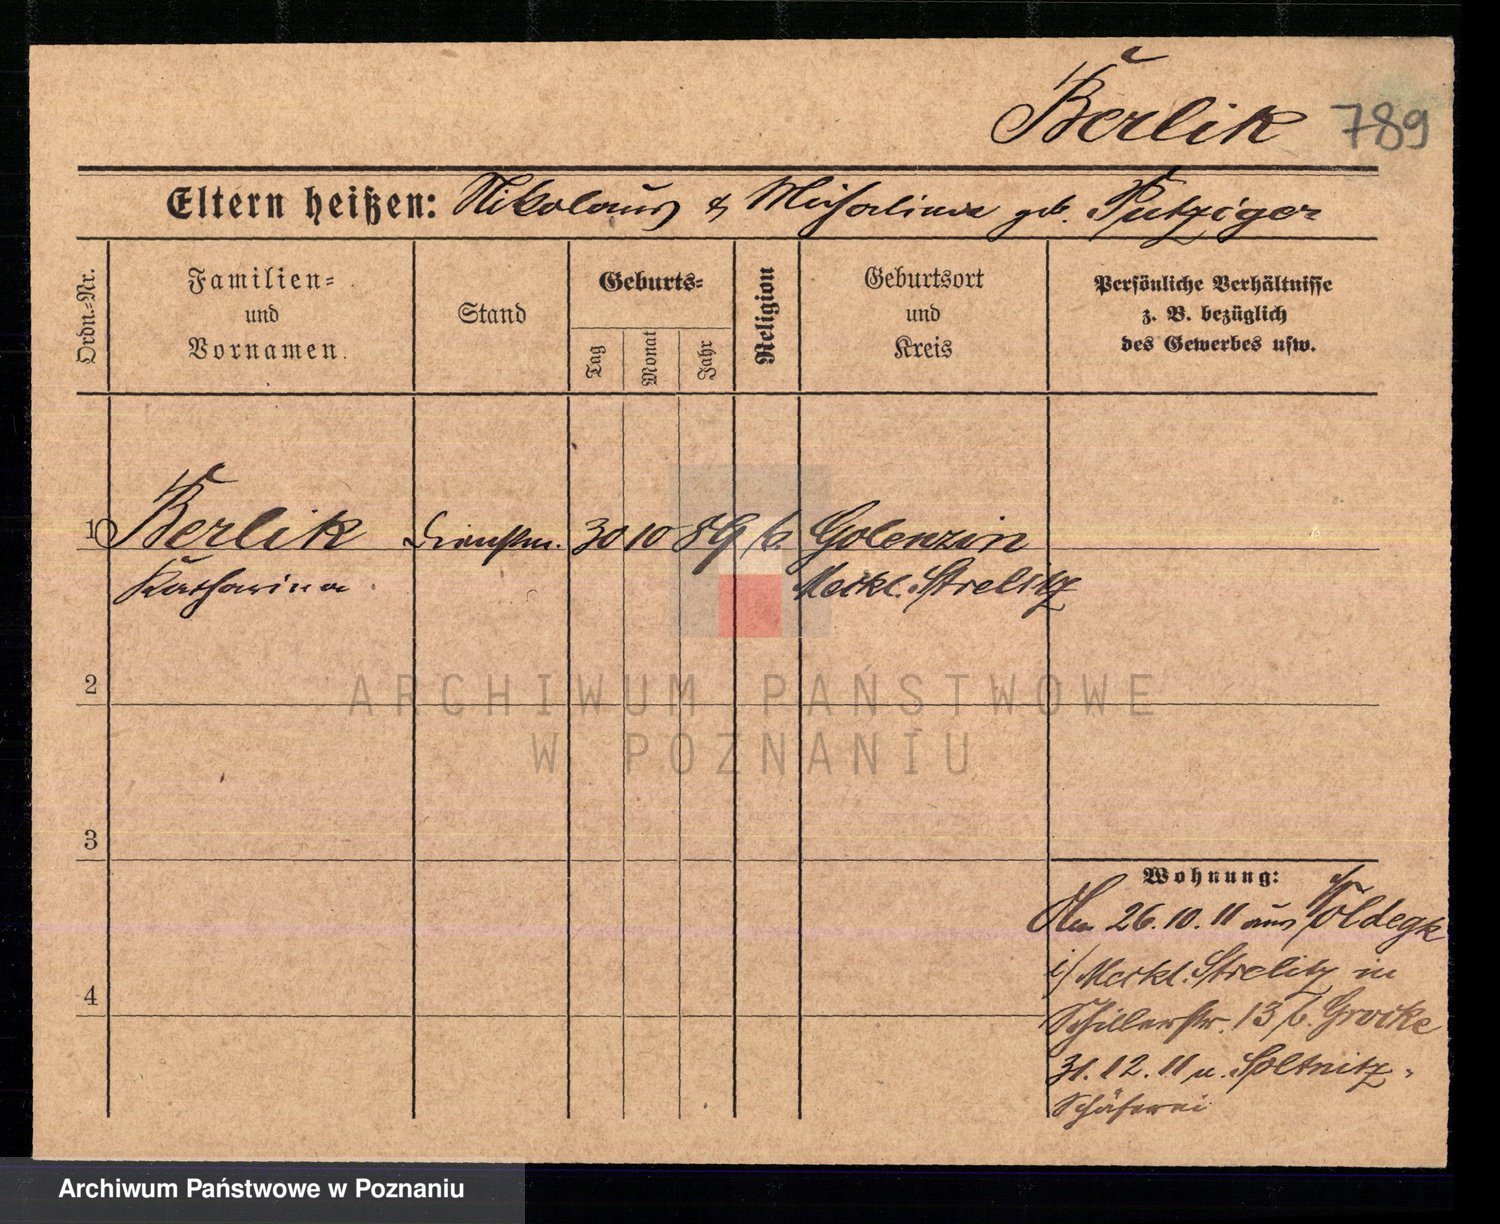 Berlik 789
Eltern heißen: Nikolaus & Michalina geb. Putziger
Ordn.-Nr.
Familien-
und
Vornamen.
Stand
Geburts-
Tag
Monat
Jahr
Religion
Geburtsort
und
Kreis
Persönliche Verhältnisse
z. B. bezüglich
des Gewerbes usw.
1 Berlik Dienstm. 30 10 89 k. Golenzin
Katharina Meckl. Strelitz
2
ARCHIWUM PAŃSTWOWE
W POZNANIU
3
4
Wohnung:
26.10.11 aus Woldegk
i/ Meckl. Strelitz in
Schillerstr. 13 b. Grocke
31.12.11 n. Holtnitz-
Schäferei
Archiwum Państwowe w Poznaniu